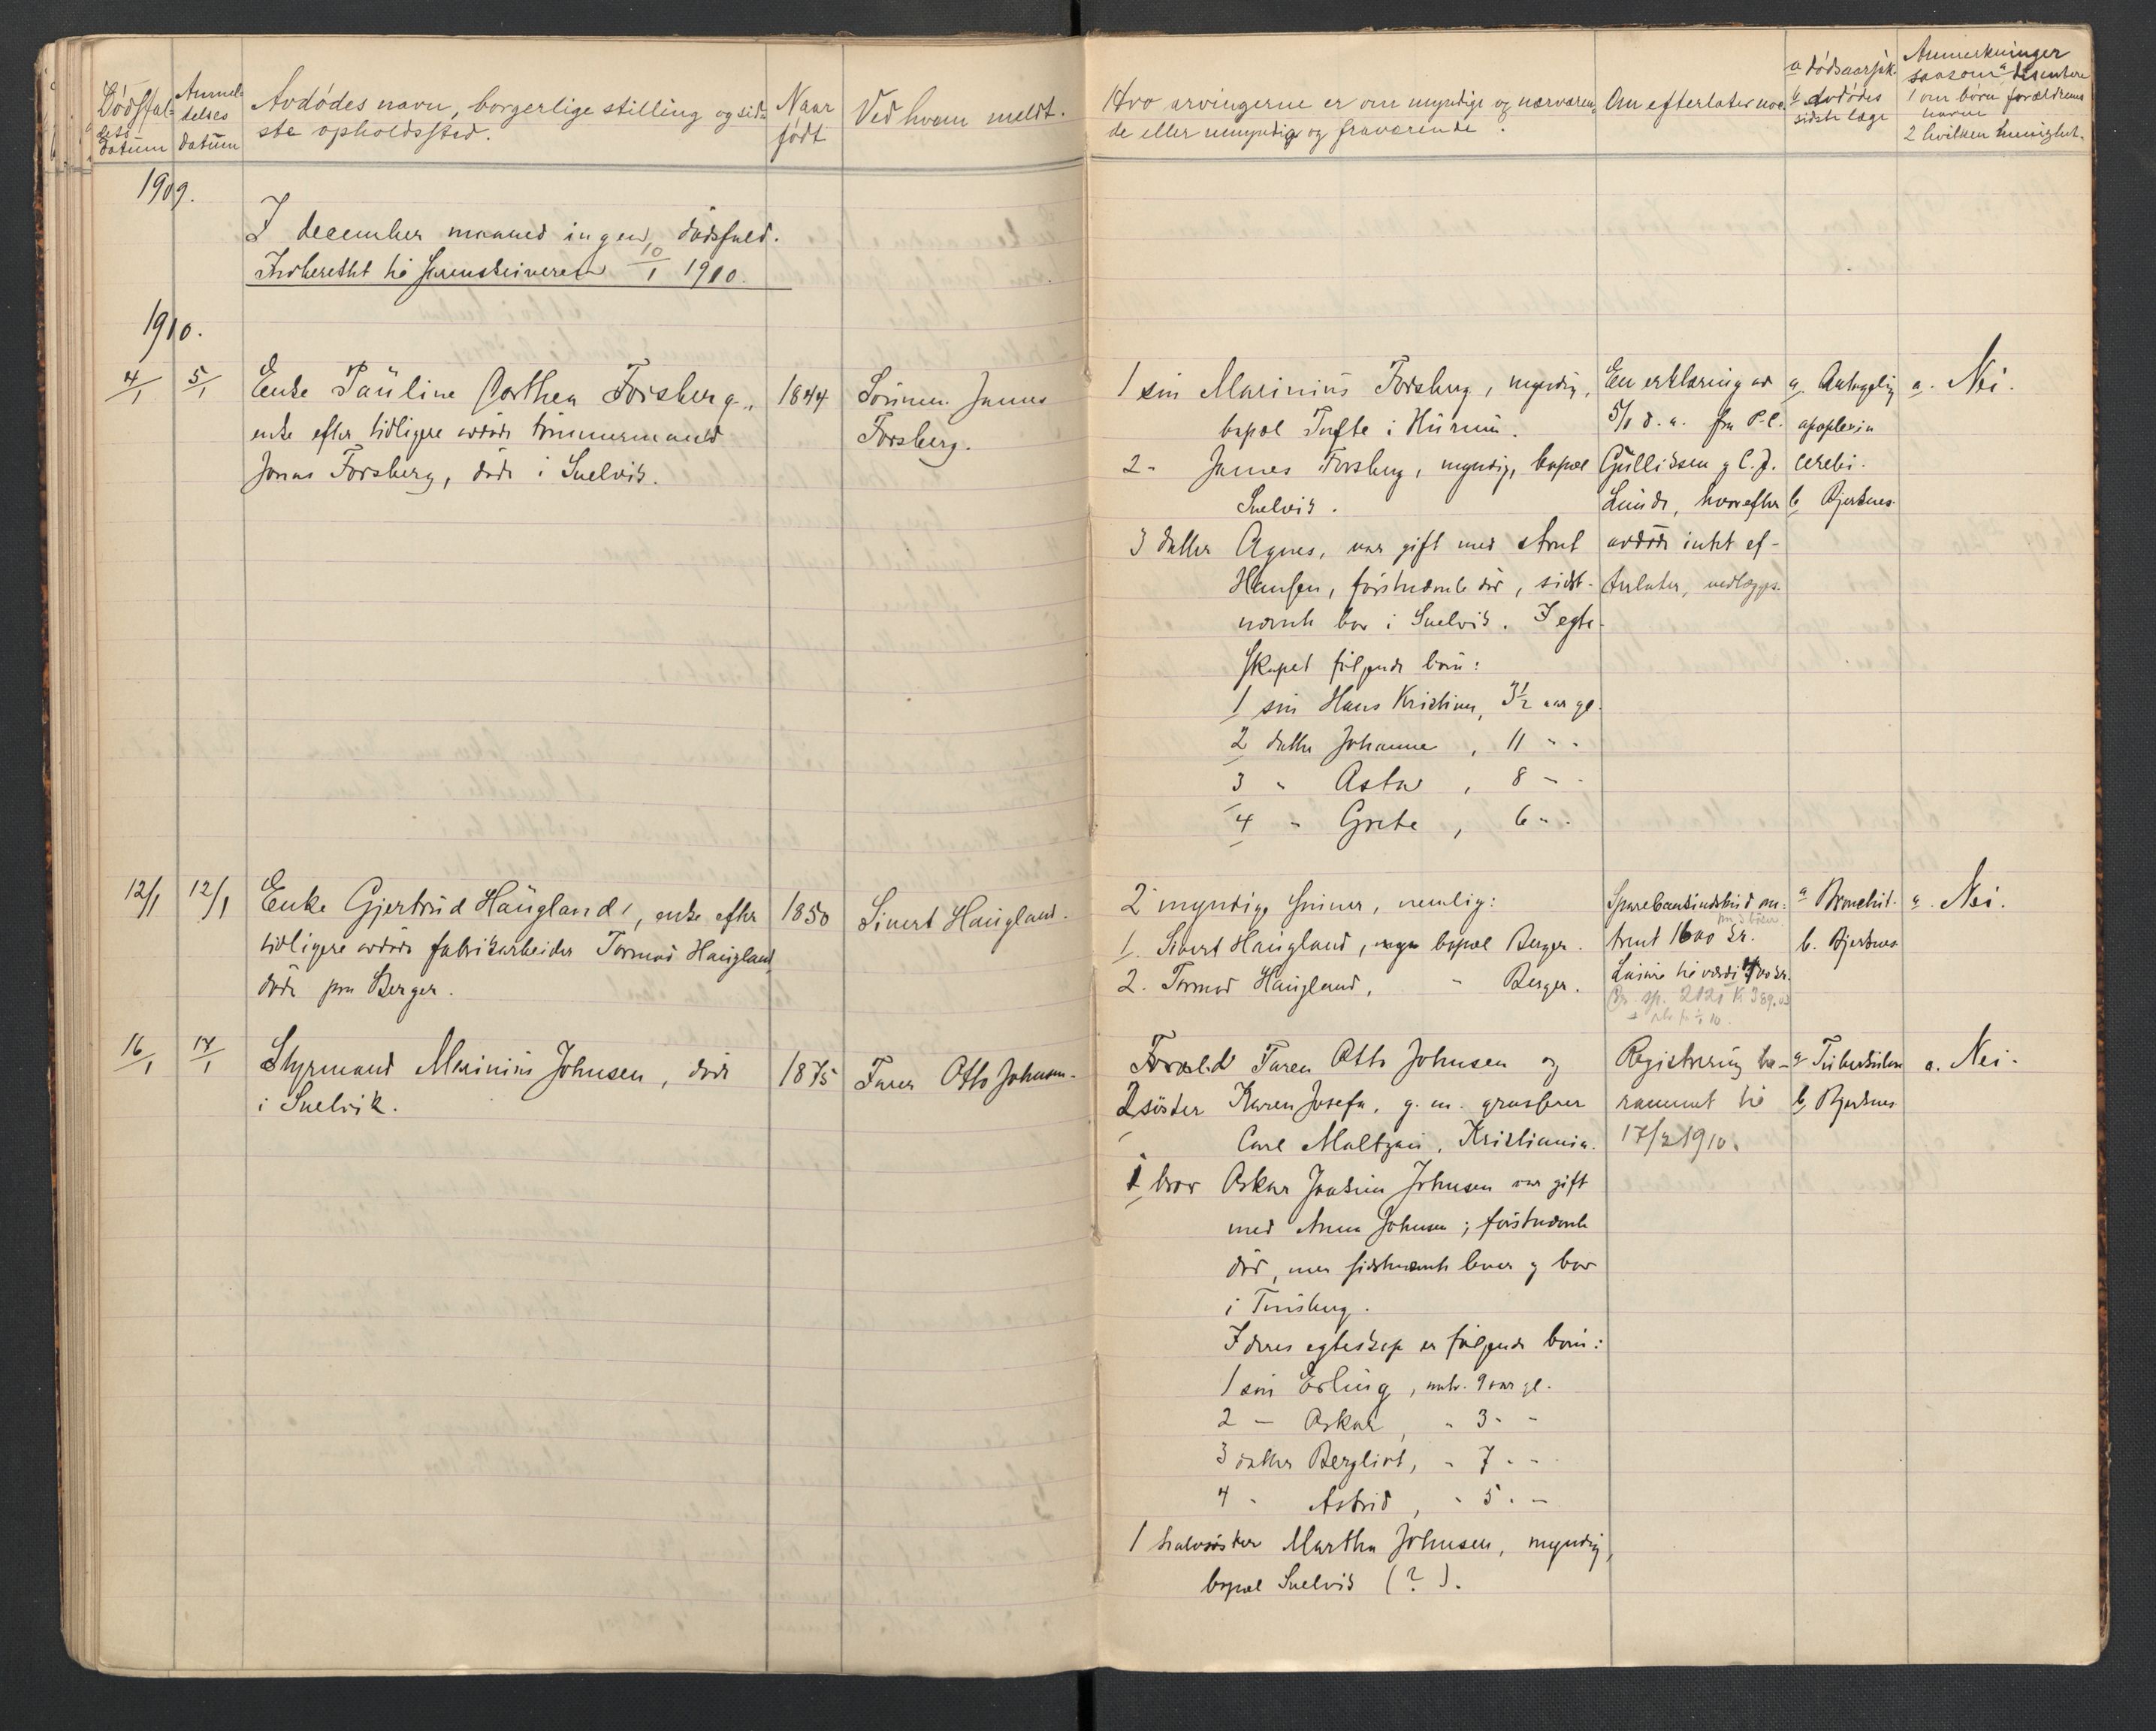 Dödsfal-
dets
datum
Anmel-
delses
datum
Avdödes navn, borgerlige stilling og sid-
ste opholdssted.
Naar
født
Ved hvem meldt.
Hvo arvingerne er om myndige og nærværen-
de eller umyndig og fraværende.
Om efterlater noe
a dødsaarsak.
b avdödes
sidste læge
Anmerkninger
saasom a
1 om börn forældrenes
navne
2
1909.
I december maaned ingen dödsfald.
Indberettet til Sorenskriveren 10/1 1910.
1910.
4/1
5/1
Enke Pauline Dorthea Forsberg,
enke efter tidligere avdöde tömmermand
Jonas Forsberg, död i Svelvik.
1844
Sönnen James
Forsberg.
1 sön Marinius Forsberg, myndig,
bopæl Tofte i Hurum.
2 - James Forsberg, myndig, bopæl
Svelvik.
3 datter Agnes, var gift med Arnt
Hansen, förstnævnte död, sidst-
nævnte bor i Svelvik. I egte-
skapet fölgende börn:
1 sön Hans Kristian, 3½ aar gl.
2 datter Johanne, 11 - -
3 - Asta, 8 - -
4 - Grete, 6 - -
En erklæring av
5/1 d. a. fra P. C.
Gulliksen og C. J.
Lunde, hvorefter
avdöde intet ef-
terlater, vedlægges.
a, Antagelig
apoplexia
cerebi.
b, Bjerknes
a. Nei.
12/1
12/1
Enke Gjertrud Haugland, enke efter
tidligere avdöde fabrikarbeider Tormod Haugland,
död paa Berger.
1850
Sivert Haugland.
2 myndige sönner, nemlig:
1. Sivert Haugland, bopæl Berger.
2. Tormod Haugland, - Berger.
Sparebankindskud om-
trent 1600 kr.
Lösöre til værdi 400 kr.
a Bronchit.
b. Bjerknes
a. Nei.
16/1
17/1
Styrmand Marinius Johnsen, död
i Svelvik.
1875
Faren Otto Johnsen.
Faren Otto Johnsen og
2 söster Karen Josefa, g. m. grosserer
Carl Maltzau, Kristiania.
1 bror Oskar Joakim Johnsen var gift
med Anna Johnsen; förstnævnte
död, men sidstnævnte lever og bor
i Tönsberg.
I deres egteskap er fölgende börn:
1 sön Erling, omtr. 9 aar gl.
2 - Oskar, - 3 - -
3 datter Bergliot, - 7 - -
4 - Astrid, - 5 - -
1 halvsöster Martha Johnsen, myndig,
bopæl Svelvik (?).
Registrering be-
rammet til
17/2 1910.
a, Tuberkulose
b, Bjerknes
a. Nei.